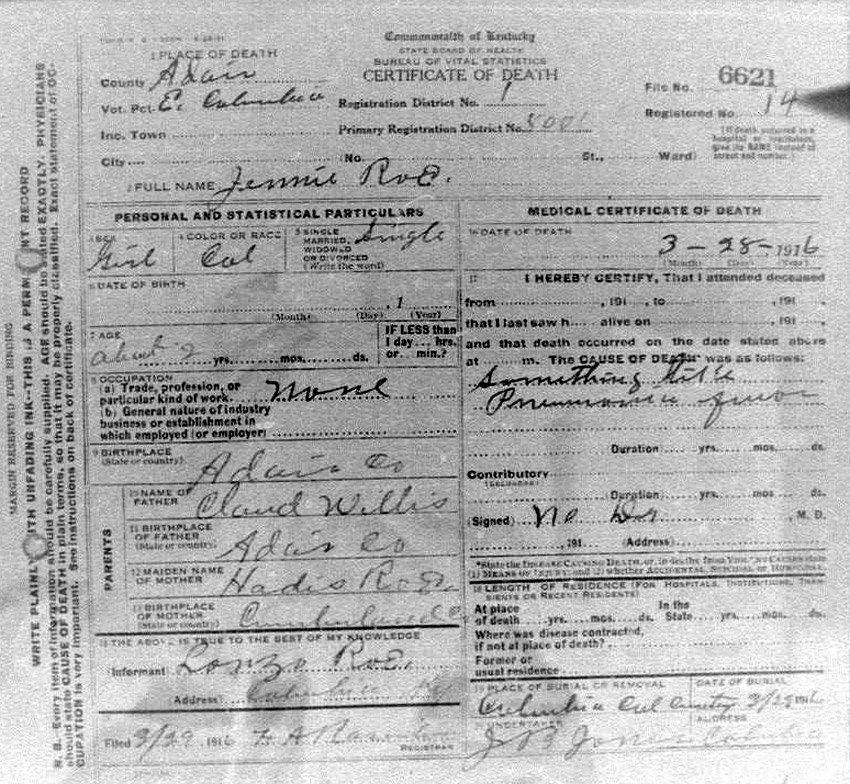 Commonwealth of Kentucky
STATE BOARD OF HEALTH
BUREAU OF VITAL STATISTICS
CERTIFICATE OF DEATH
1 PLACE OF DEATH
County Adair
Vot. Pct. E. Columbia
Inc. Town
City
Registration District No. 1
Primary Registration District No. 5001
(No. St., Ward)
File No. 6621
Registered No. 14
(If death occurred in a
hospital or institution,
give its NAME instead of
street and number.)
2 FULL NAME Jennie Roe.
PERSONAL AND STATISTICAL PARTICULARS
3 SEX
Girl
4 COLOR OR RACE
Col
5 SINGLE
MARRIED,
WIDOWED
OR DIVORCED
(Write the word)
Single
6 DATE OF BIRTH
, 1
(Month) (Day) (Year)
7 AGE
about 2 yrs. mos. ds.
IF LESS than
1 day... hrs.
or... min.?
8 OCCUPATION
(a) Trade, profession, or
particular kind of work none
(b) General nature of industry
business or establishment in
which employed (or employer)
9 BIRTHPLACE
(State or country) Adair Co
PARENTS
10 NAME OF
FATHER Claud Willis
11 BIRTHPLACE
OF FATHER
(State or country) Adair Co
12 MAIDEN NAME
OF MOTHER
13 BIRTHPLACE
OF MOTHER
(State or country) Cumberland Co
14 THE ABOVE IS TRUE TO THE BEST OF MY KNOWLEDGE
(Informant) Lonzo Roe.
(Address) Columbia Ky
Filed 3/29 1916
REGISTRAR
MEDICAL CERTIFICATE OF DEATH
16 DATE OF DEATH
3 - 28 - 1916
(Month) (Day) (Year)
17 I HEREBY CERTIFY, That I attended deceased
from , 191 , to , 191 ,
that I last saw h alive on , 191 ,
and that death occurred on the date stated above
at m. The CAUSE OF DEATH* was as follows:
Something like
Pneumonia fever
Duration yrs. mos. ds.
Contributory
(SECONDARY)
(Duration) yrs. mos. ds.
(Signed) No Dr , M. D.
, 191 (Address)
*State the DISEASE CAUSING DEATH, or, in deaths from VIOLENT CAUSES state
(1) MEANS OF INJURY; and (2) whether ACCIDENTAL, SUICIDAL or HOMICIDAL.
18 LENGTH OF RESIDENCE (FOR HOSPITALS, INSTITUTIONS, TRANSIENTS OR RECENT RESIDENTS)
At place
of death yrs. mos. ds.
In the
State yrs. mos. ds.
Where was disease contracted,
if not at place of death?
Former or
usual residence
19 PLACE OF BURIAL OR REMOVAL
Columbia Col
DATE OF BURIAL
3/29 1916
UNDERTAKER
ADDRESS
MARGIN RESERVED FOR BINDING
WRITE PLAINLY WITH UNFADING INK--THIS IS A PERMANENT RECORD
N. B. Every item of information should be carefully supplied. AGE should be stated EXACTLY. PHYSICIANS
should state CAUSE OF DEATH in plain terms, so that it may be properly classified. Exact statement of OC-
CUPATION is very important. See instructions on back of certificate.